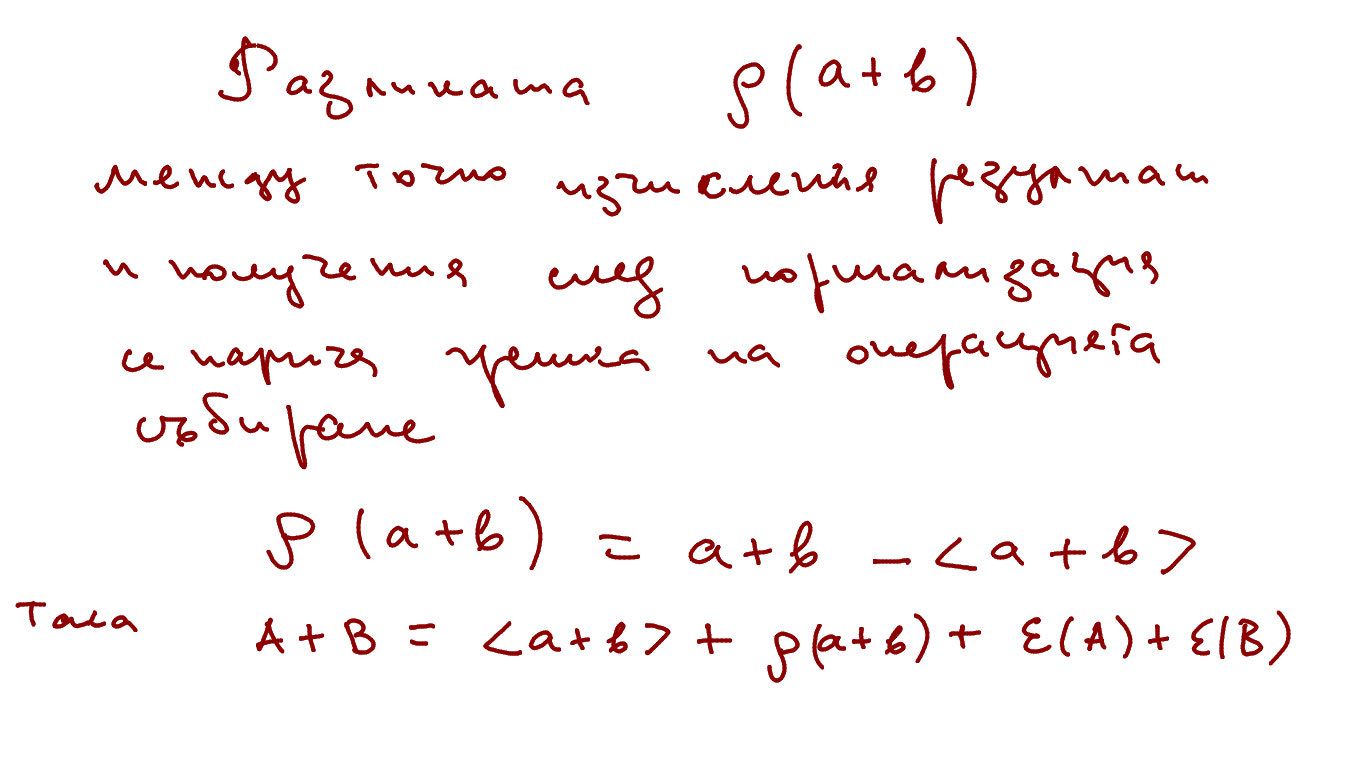 Разликата ρ(a+b)
между точно изчисления резултат
и получения след нормализация
се нарича грешка на операцията
събиране
ρ(a+b) = a+b - <a+b>
Така A+B = <a+b> + ρ(a+b) + ε(A) + ε(B)